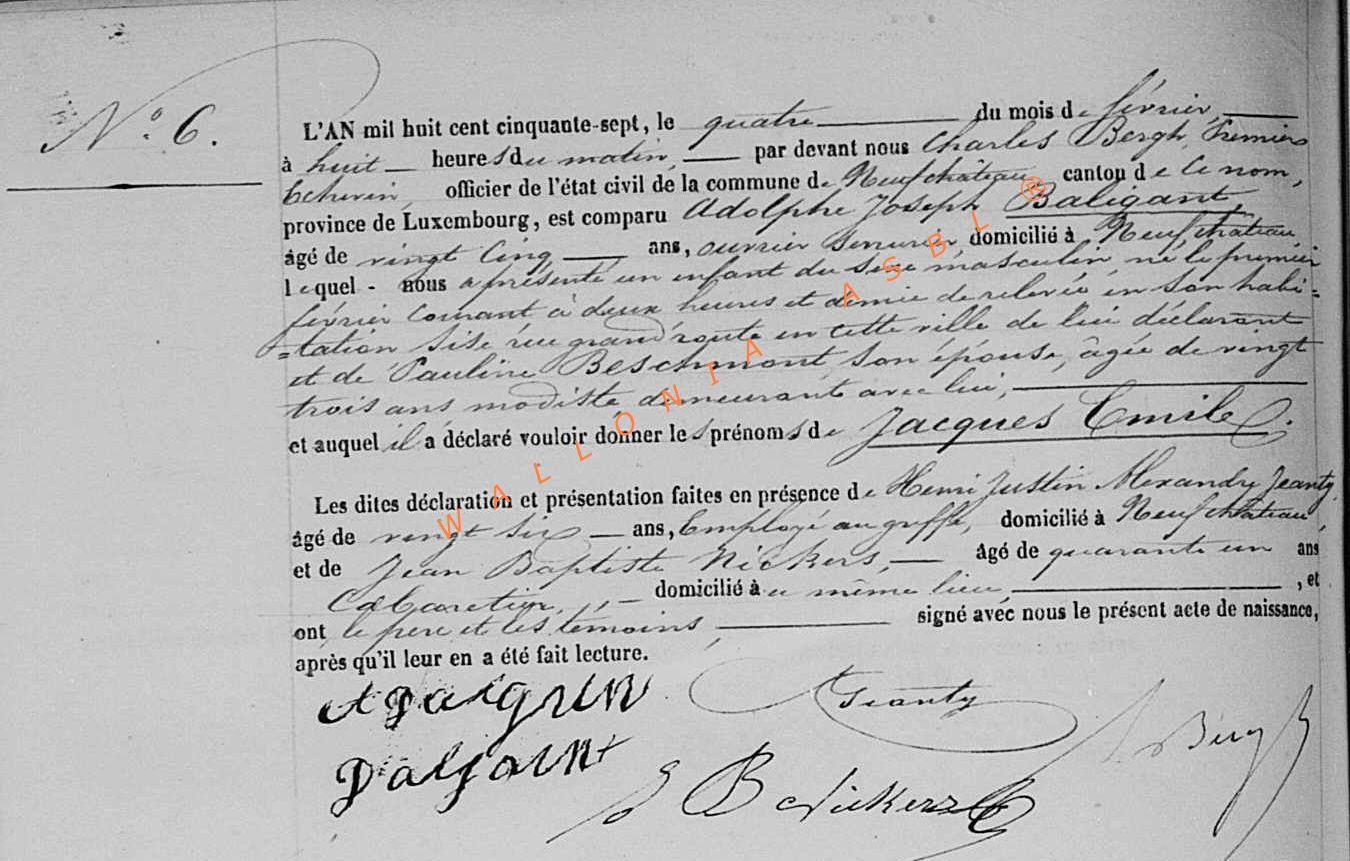 N° 6.
L'AN mil huit cent cinquante-sept, le quatre du mois de février,
à huit heures du matin, par devant nous Charles Bergh, Premier
Echevin, officier de l'état civil de la commune de Neufchâteau canton de ce nom,
province de Luxembourg, est comparu Adolphe Joseph Baligant,
âgé de vingt cinq ans, ouvrier serrurier, domicilié à Neufchâteau
lequel - nous a présenté un enfant du sexe masculin né le premier
février courant à deux heures et demie de relevée en son habi=
=tation sise rue grand'route en cette ville de lui déclarant
et de Pauline Beschmont, son épouse, âgée de vingt
trois ans modiste demeurant avec lui,
et auquel il a déclaré vouloir donner les prénoms de Jacques Emile.
Les dites déclaration et présentation faites en présence de Henri Justin Alexandre Jeanty,
âgé de vingt six ans, Employé au greffe, domicilié à Neufchâteau,
et de Jean Baptiste Nickers, âgé de quarante un ans
Cabaretier, domicilié au même lieu, , et
ont le père et les témoins, signé avec nous le présent acte de naissance,
après qu'il leur en a été fait lecture.
Jeanty
Bergh
J B Nickers
WALLONIA ASBL ®